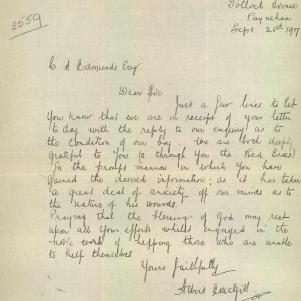 3559
Tollock Avenue
Payneham
Sept 25th 1917
C A Edmunds Esq.
Dear Sir
Just a few lines to let
You know that we are in receipt of your letter
to day with the reply to our enquiry as to
the Condition of our boy. We are both deeply
grateful to You (& through You the Red Cross)
for the prompt manner in which you have
gained the desired information; as it has taken
a great deal of anxiety off our minds as to
the nature of his wounds.
Praying that the blessing of God may rest
upon all your efforts whilst engaged in the
noble work of helping those who are unable
to help themselves
Yours faithfully
Albert